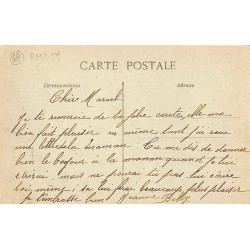 CARTE POSTALE
Correspondance
Adresse
Chère Marcel
Je te remercie de ta jolie carte, elle m'a
bien fait plaisir en même tant j'ai reçu
une lettre de la maman. Tu me dis de donner
bien le bonjour à la maman quand je lui
écrirai, mais ne pourra tu pas lui écrire
toi, même; sa lui fera beaucoup plus plaisir
je t'embrasse bien Jeanne